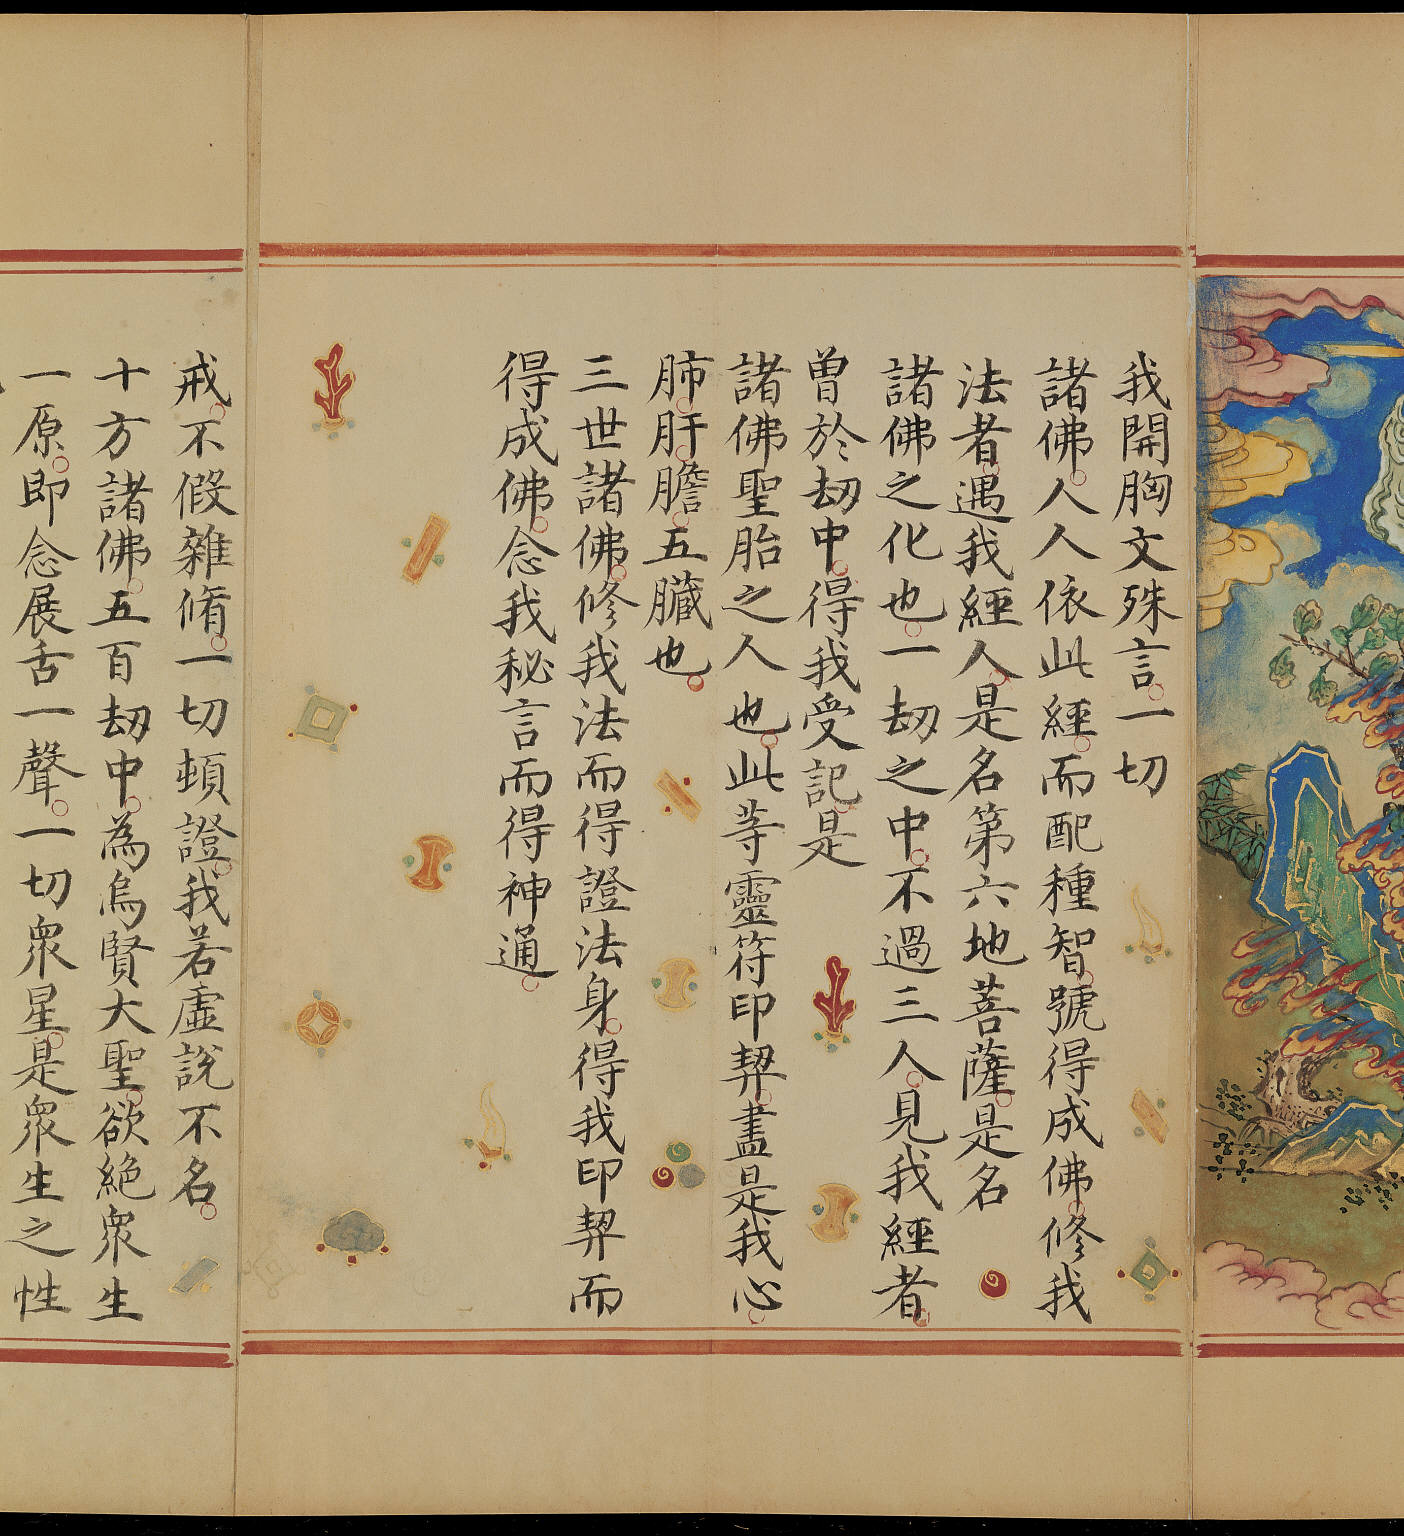 我開胸文殊言一切
諸佛人人依此經而配種智號得成佛修我
法者遇我經人是名第六地菩薩是名
諸佛之化也一劫之中不過三人見我經者
曾於劫中得我受記是
諸佛聖胎之人也此等靈符印契盡是我心
肺肝膽五臟也
三世諸佛修我法而得證法身得我印契而
得成佛念我秘言而得神通
戒不假雜脩一切頓證我若虛說不名
十方諸佛五百劫中為烏賢大聖欲絕衆生
一原即念展舌一聲一切衆星是衆生之性